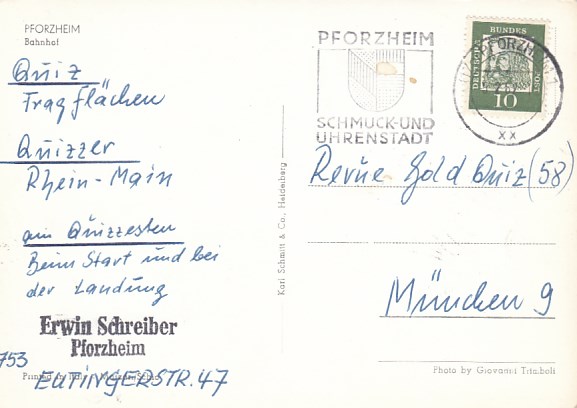 PFORZHEIM
Bahnhof
Quiz
Fragflächen
Quizzer
Rhein-Main
am Quizzesten
Beim Start und bei
der Landung
Erwin Schreiber
Pforzheim
753
EUTINGERSTR. 47
Printed in
Karl Schmitt & Co., Heidelberg
PFORZHEIM
SCHMUCK-UND
UHRENSTADT
DEUTSCHE
BUNDES
POST
10
PFORZHEIM
xx
Revue Gold Quiz (58)
München 9
Photo by Giovanni Trimboli